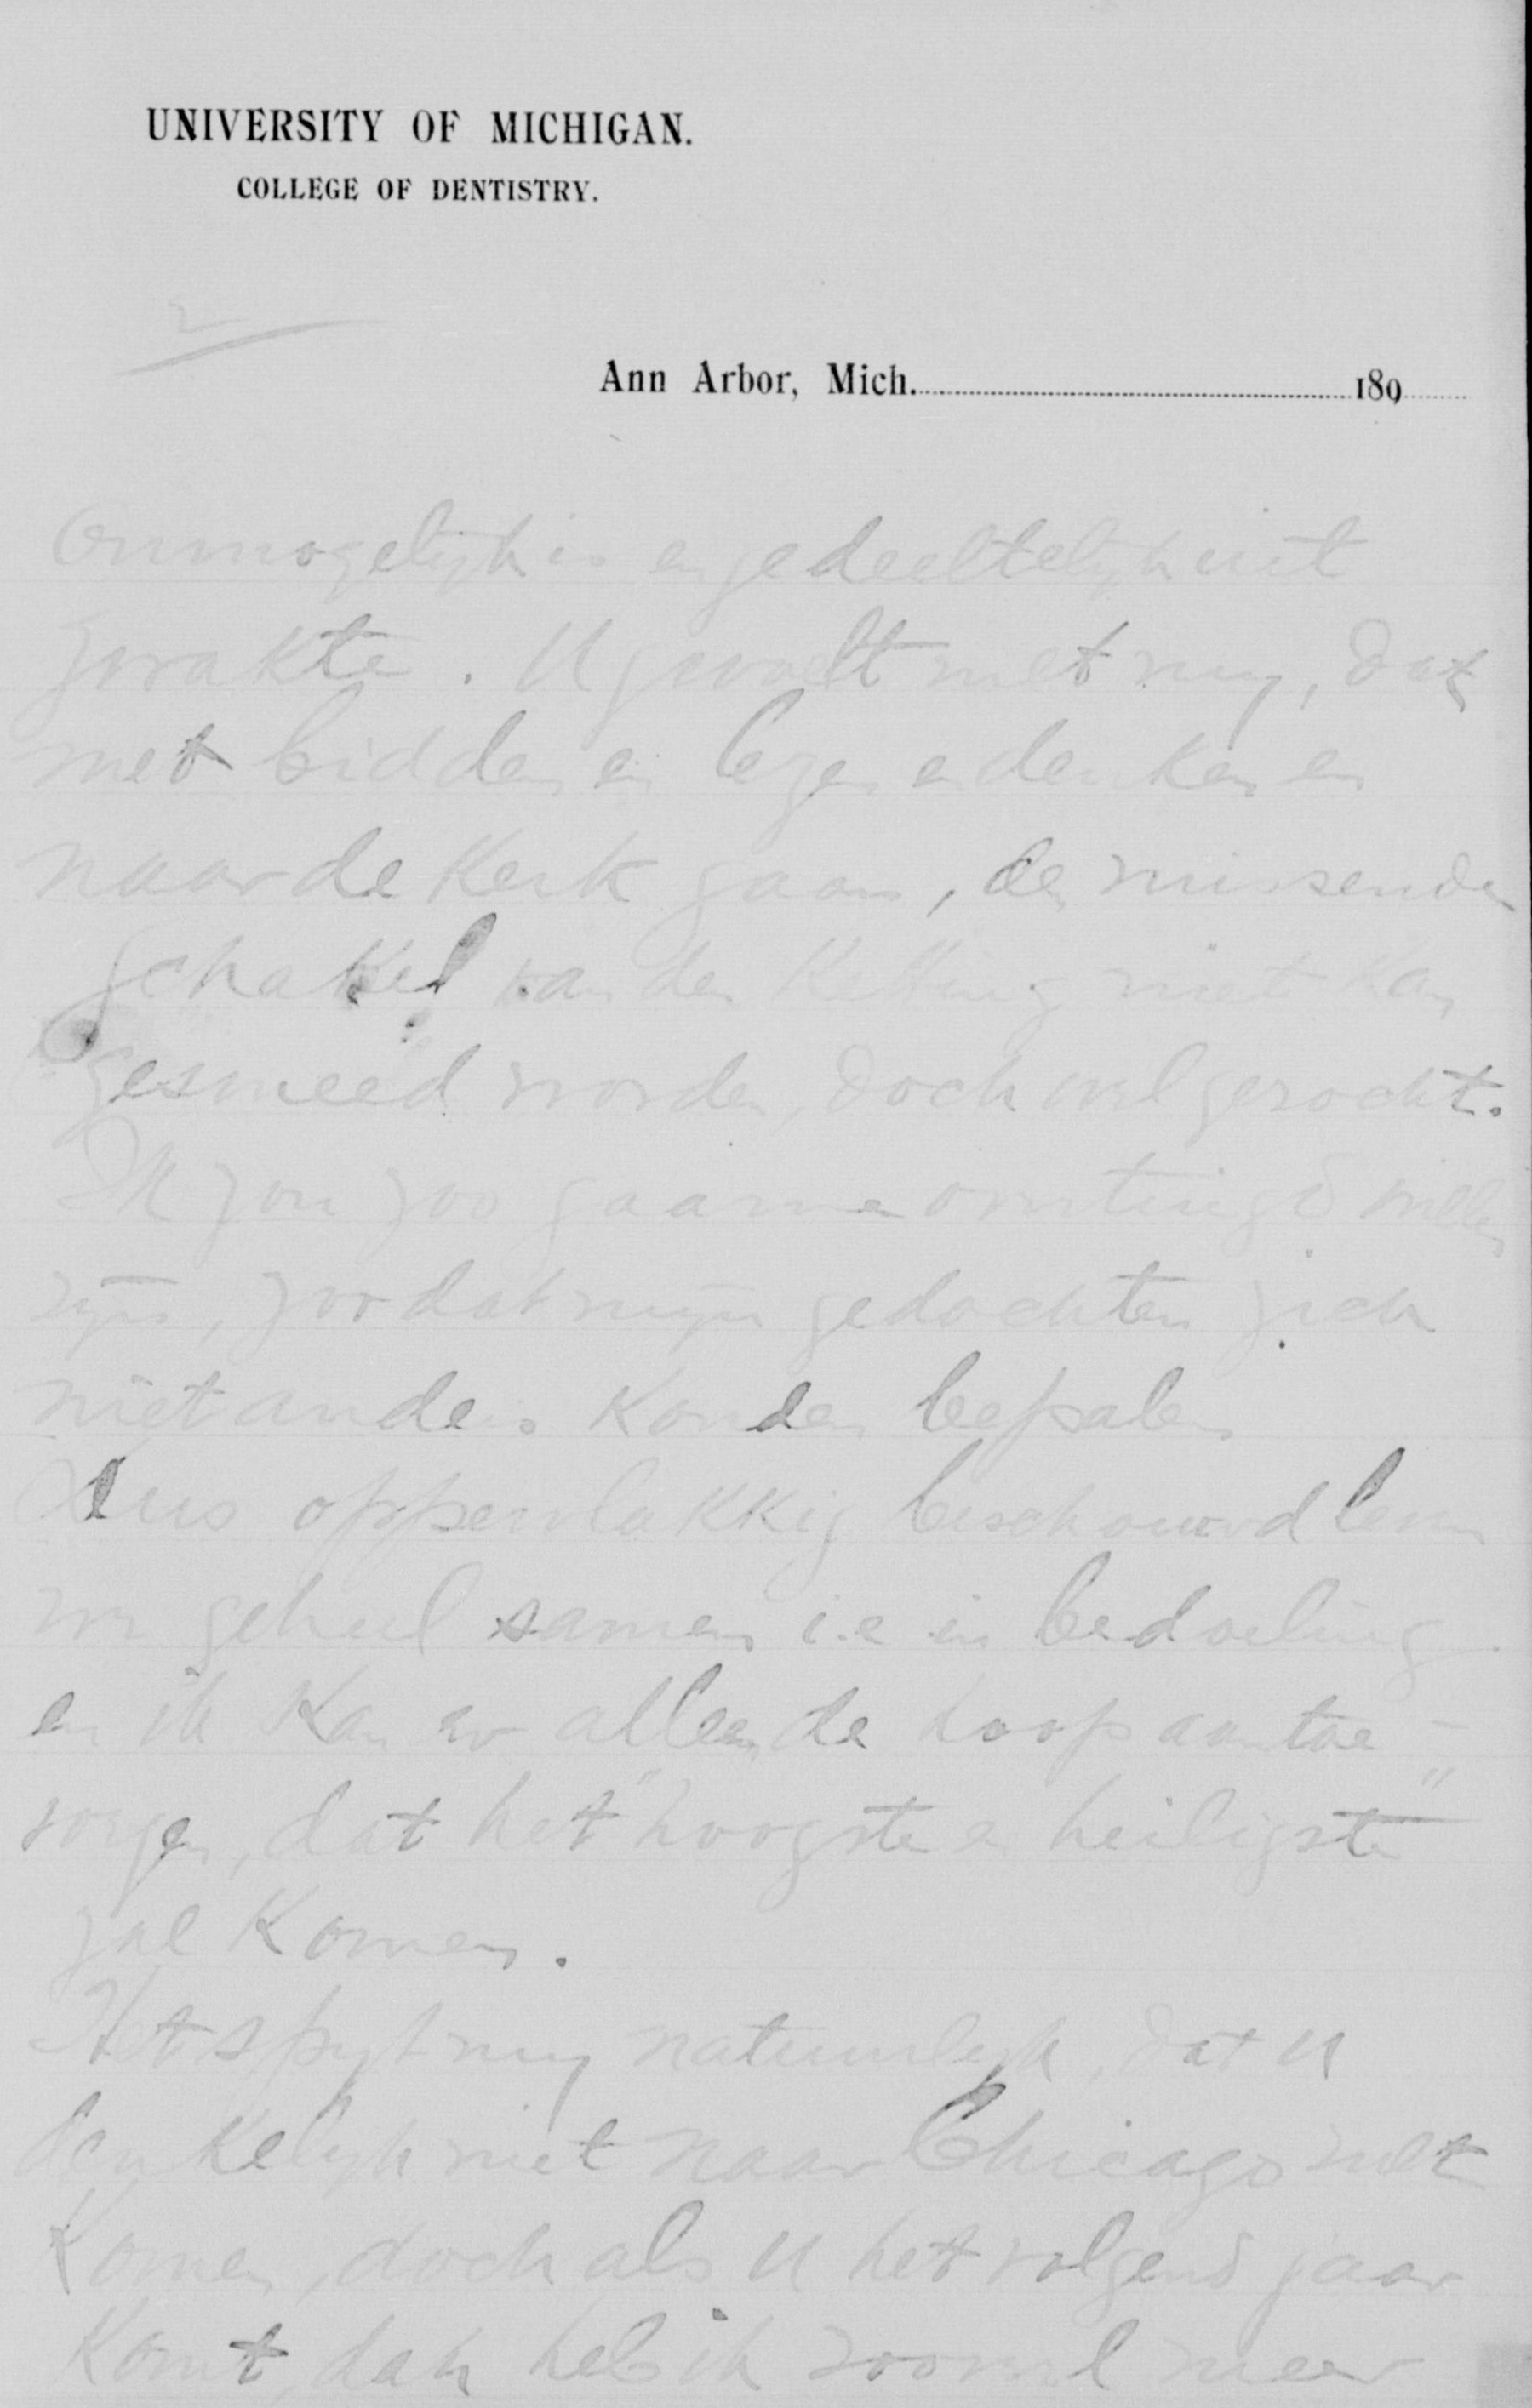 UNIVERSITY OF MICHIGAN.
COLLEGE OF DENTISTRY.
2
Ann Arbor, Mich. 189
Onmogelijk is en gedeeltelijk uit
zwakte. U gevoelt met mij, dat
met bidden en lezen en denken en
naar de Kerk gaan, de missende
schakel van den Ketting niet kan
gesmeed worden, doch wel gezocht.
Ik zou zoo gaarne omringd willen
zijn, zoodat mijn gedachten zich
niet anders Konden bepalen
Dus oppervlakkig beschouwd
we geheel samen i.e. in bedoeling
en ik Kan er alleen de hoop aan toe-
voegen, dat het "hoogste en heiligste"
zal Komen.
Het spijt mij natuurlijk, dat U
denkelijk niet naar Chicago zult
Komen, doch als U het volgend jaar
Komt, dan heb ik zooveel meer